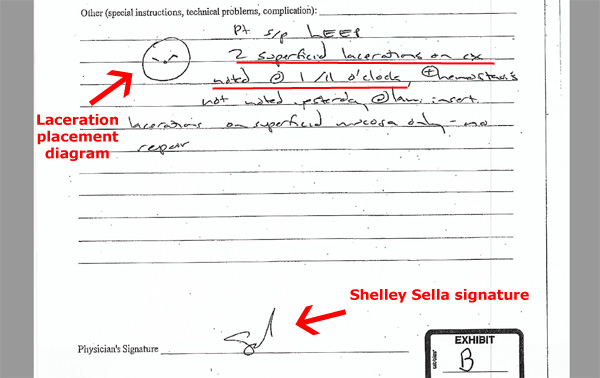 Other (special instructions, technical problems, complication):
Pt s/p LEEP
2 superficial lacerations on cx
noted @ 1/11 o'clock, ⊕ hemostasis
not noted yesterday @ lam. insert.
lacerations on superficial mucosa only - no
repair
Laceration
placement
diagram
Shelley Sella signature
Physician's Signature
EXHIBIT
B